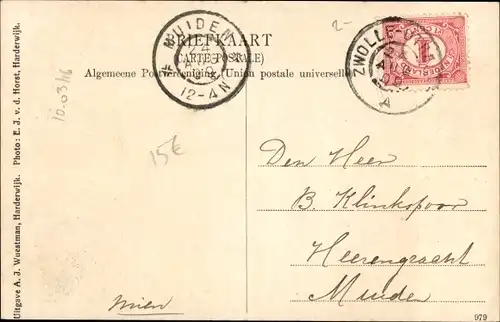 BRIEFKAART
(CARTE POSTALE)
Algemeene Postvereeniging (Union postale universelle)
MUIDEN
24
12-4N
ZWOLLE
A
1
NEDERLAND
2-
10.03/16
15€
Den Heer
B. Klinkspoor
Heerengracht
Muiden
Mien
Uitgave A. J. Wuestman, Harderwijk. Photo: E. J. v. d. Horst, Harderwijk.
979